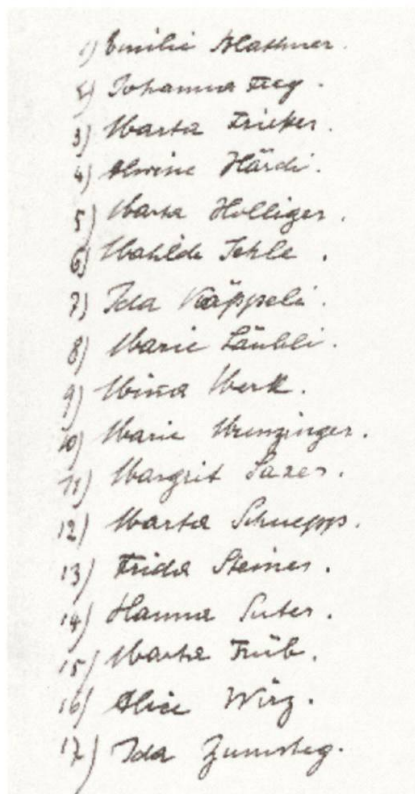 1) Emilie Blattner.
2) Johanna Fey.
3) Marta Fricker.
4) Alwine Härdi.
5) Marta Holliger.
6) Mathilde Jehle.
7) Ida Käppeli.
8) Marie Läubli.
9) Mina Merk.
10) Marie Munzinger.
11) Margrit Saxer.
12) Marta Schuepp.
13) Frida Steiner.
14) Hanna Suter.
15) Marta Trüb.
16) Alice Wirz.
17) Ida Zumsteg.